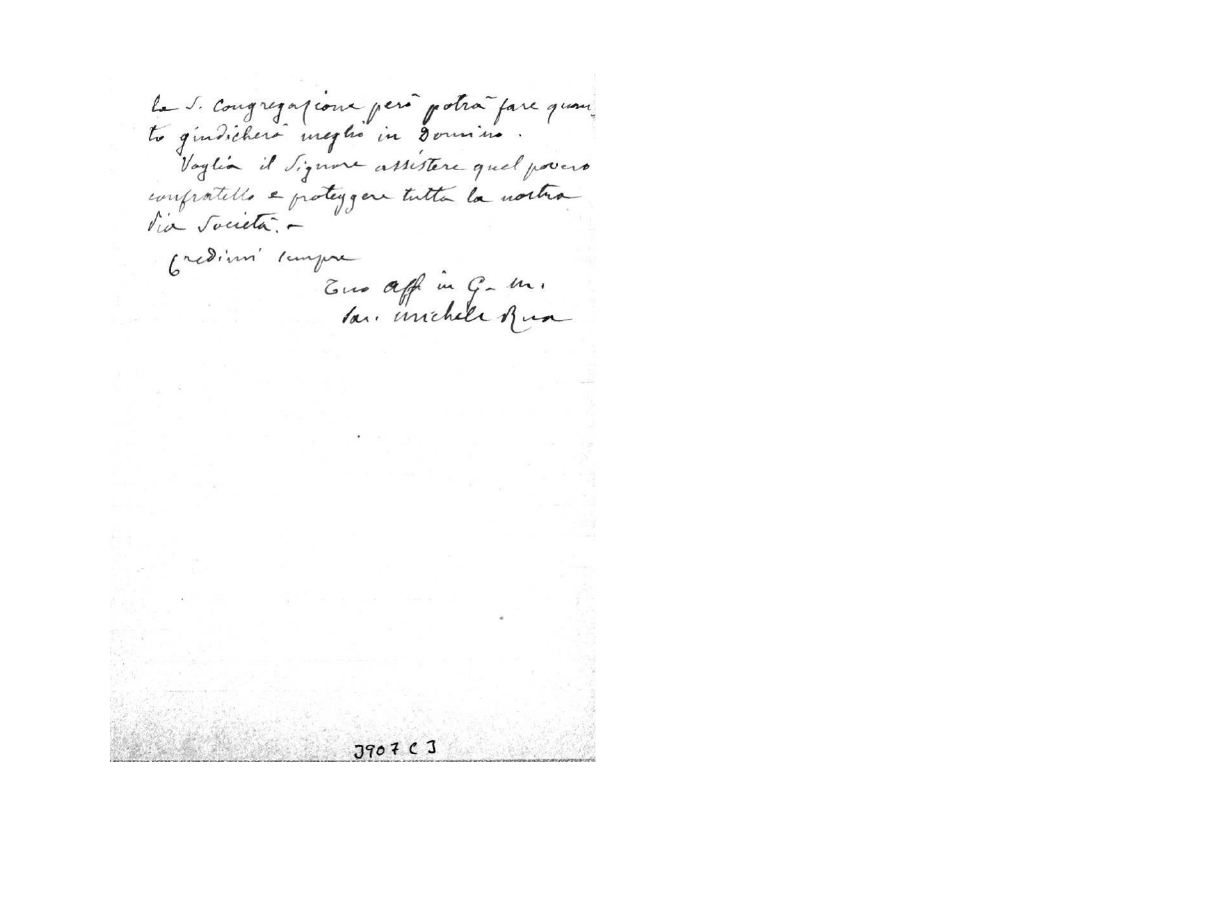 la S. Congregazione però potrà fare quan-
to giudicherà meglio in Domino.
Voglia il Signore assistere quel povero
confratello e proteggere tutta la nostra
Pia Società. -
Credimi sempre
Tuo aff in G. M.
Sac. Michele Rua
3907 C 3